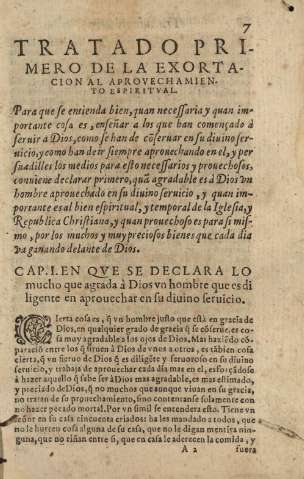 7
TRATADO PRI-
MERO DE LA EXORTA-
CION AL APROVECHAMIEN-
TO ESPIRITVAL.
Para que se entienda bien, quan necessaria y quan im-
portante cosa es, enseñar a los que han començado à
seruir à Dios, como se han de cõseruar en su diuino ser-
uicio, y como han de ir siempre aprouechando en el, y per
suadilles los medios para esto necessarios y prouechosos,
conuiene declarar primero, quã agradable es à Dios vn
hombre aprouechado en su diuino seruicio, y quan im-
portante es al bien espiritual, y temporal de la Iglesia, y
Republica Christiana, y quan prouechoso es para si mis-
mo, por los muchos y muy preciosos bienes que cada dia
va ganando delante de Dios.
CAP. I. EN QVE SE DECLARA LO
mucho que agrada à Dios vn hombre que es di
ligente en aprouechar en su diuino seruicio.
Cierta cosa es, q̃ vn hombre justo que està en gracia de
Dios, en qualquier grado de gracia q̃ se cõserue, es co-
sa muy agradable a los ojos de Dios. Mas haziẽdo cõ-
paraciõ entre los q̃ siruen à Dios de vnos a otros, es tãbien cosa
cierta, q̃ vn sieruo de Dios q̃ es diligẽte y feruoroso en su diuino
seruicio, y trabaja de aprouechar cada dia mas en el, esforçãdose
à hazer aquello q̃ sabe ser à Dios mas agradable, es mas estimado,
y preciado de Dios, q̃ no muchos que aunque viuan en su gracia,
no tratan de su prouechamiento, sino contentanse solamente con
no hazer pecado mortal. Por vn simil se entendera esto. Tiene vn
señor en su casa cincuenta criados: ha les mandado a todos, que
no le hurten cosa alguna de su casa, que no le digan mentira nin-
guna, que no riñan entre si, que en casa le aderecen la comida, y
A 2 fuera